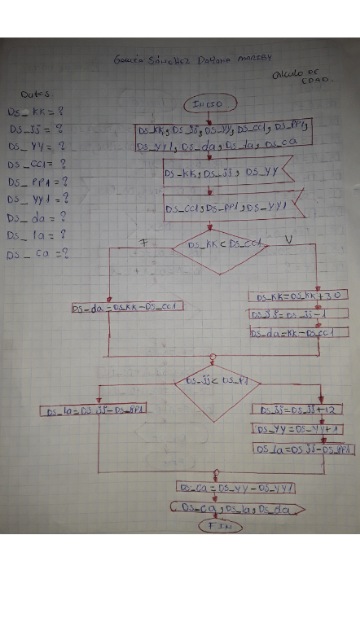 García Sánchez Dayana
Calculo de
EDAD.
Datos.
DS_KK=?
DS_JJ=?
DS_YY=?
DS_CC1=?
DS_PP1=?
DS_YY1=?
DS_da=?
DS_la=?
DS_ca=?
INICIO
DS_KK, DS_JJ, DS_YY, DS_CC1, DS_PP1,
DS_YY1, DS_da, DS_la, DS_ca
DS_KK, DS_JJ, DS_YY
DS_CC1, DS_PP1, DS_YY1
F
DS_KK < DS_CC1
V
DS_da=DS_KK-DS_CC1
DS_KK=DS_KK+30
DS_JJ=DS_JJ-1
DS_da=KK-DS_CC1
DS_JJ< DS_P1
DS_la=DS_JJ-DS_PP1
DS_JJ=DS_JJ+12
DS_YY=DS_YY+1
DS_la=DS_JJ-DS_PP1
DS_ca=DS_YY-DS_YY1
DS_ca, DS_la, DS_da
FIN